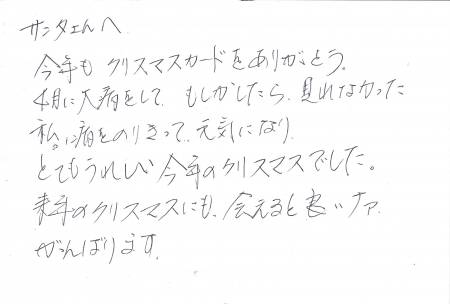 サンタさんへ
今年も クリスマスカードをありがとう。
4月に大病をして、もしかしたら、見れなかった
私。病をのりきって、元気になり、
とてもうれしい今年のクリスマスでした。
来年のクリスマスにも、会えると良いナァ
がんばります。